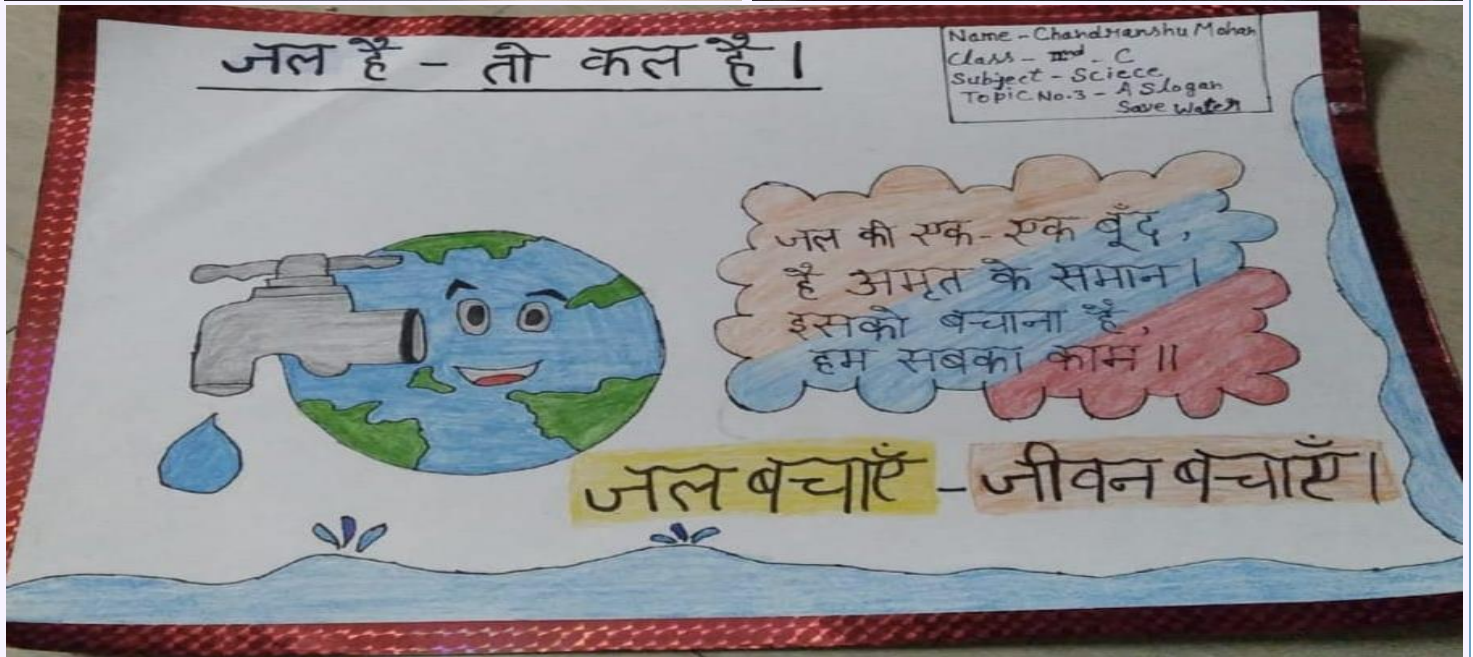 जल है - तो कल है।
Name - Chandranshu Mohan
Class - IInd - C
Subject - Sciece
Topic No.3 - A Slogan
Save Water
जल की एक-एक बूँद,
है अमृत के समान।
इसको बचाना है,
हम सबका काम॥
जल बचाएँ - जीवन बचाएँ।